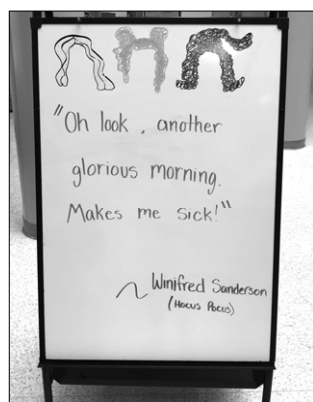 "Oh look, another
glorious morning.
Makes me sick!"
~ Winifred Sanderson
(Hocus Pocus)